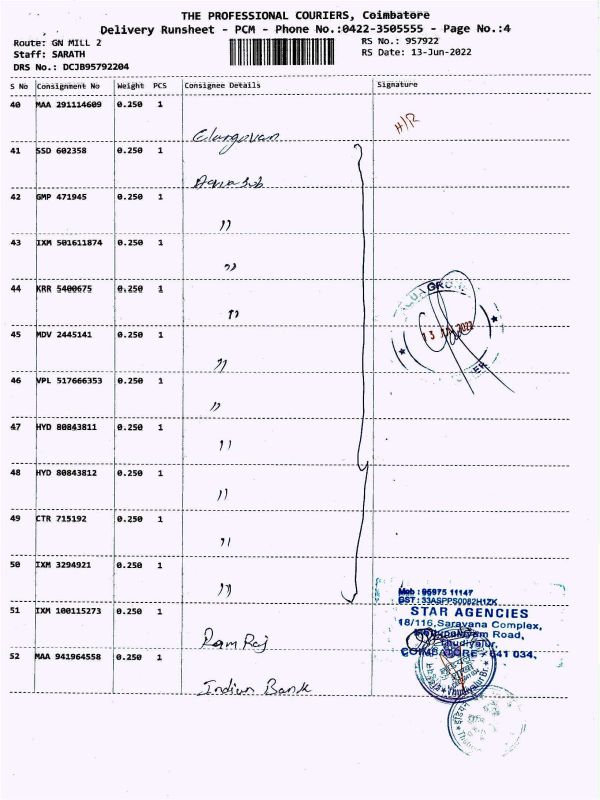 THE PROFESSIONAL COURIERS, Coimbatore
Delivery Runsheet - PCM - Phone No.:0422-3505555 - Page No.:4
Route: GN MILL 2
Staff: SARATH
DRS No.: DCJB95792204
RS No.: 957922
RS Date: 13-Jun-2022
S No Consignment No Weight PCS Consignee Details Signature
40 MAA 291114609 0.250 1
H/R
41 SSD 602358 0.250 1
42 GMP 471945 0.250 1
"
43 IXM 501611874 0.250 1
"
44 KRR 5400675 0.250 1
"
45 MDV 2445141 0.250 1
"
13 2022
46 VPL 517666353 0.250 1
"
47 HYD 80843811 0.250 1
"
48 HYD 80843812 0.250 1
"
49 CTR 715192 0.250 1
"
50 IXM 3294921 0.250 1
"
Mob : 95975 11147
GST : 33ASPPS0082H1ZK
STAR AGENCIES
18/116, Saravana Complex,
Road,
Thudiyalur,
COIMBATORE - 641 034.
51 IXM 100115273 0.250 1
Ram Raj
52 MAA 941964558 0.250 1
Indian Bank
Thudiyalur Br.